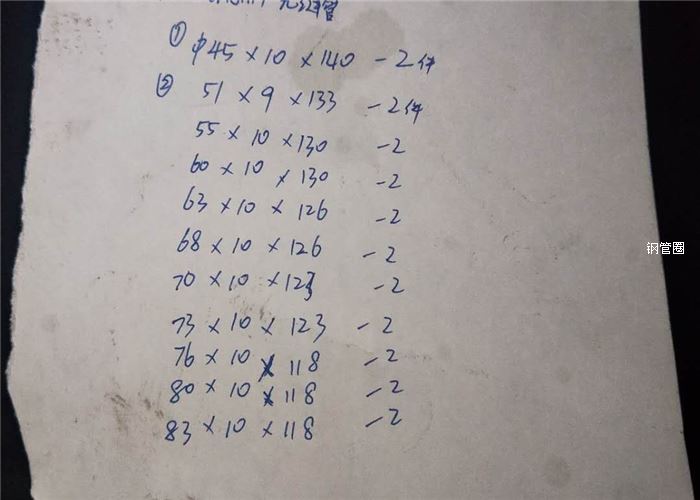 无缝管
① φ45×10×140 -2件
② 51×9×133 -2件
55×10×130 -2
60×10×130 -2
63×10×126 -2
68×10×126 -2
钢管圈
70×10×123 -2
73×10×123 -2
76×10×118 -2
80×10×118 -2
83×10×118 -2